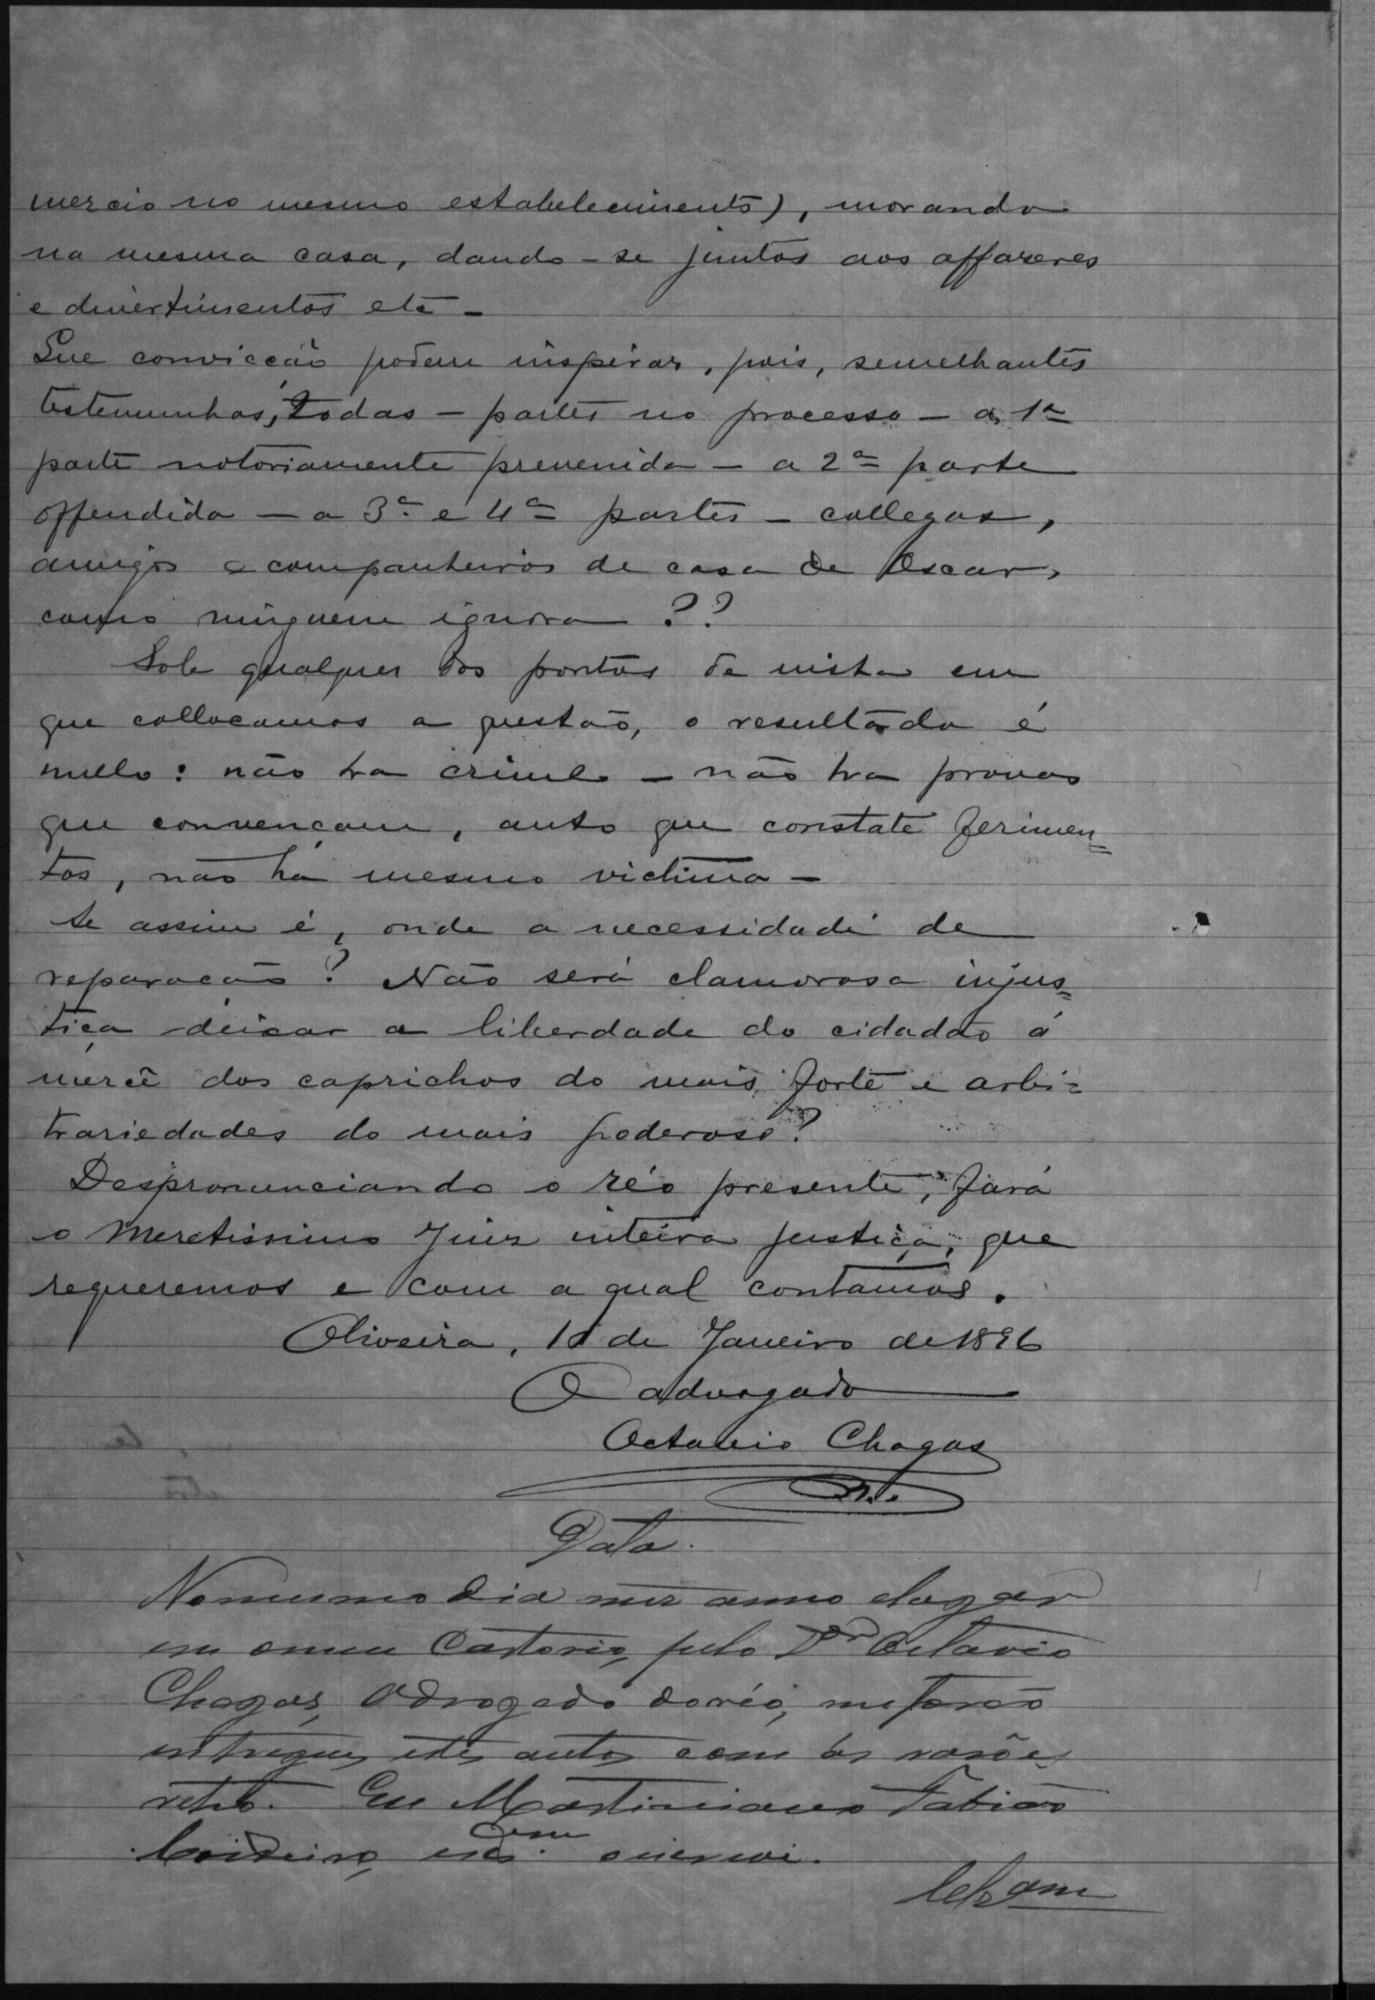 mercio no mesmo estabelecimento), morando
na mesma casa, dando-se juntos aos affazeres
e divertimentos etc -
Que convicção podem inspirar, pois, semelhantes
testemunhas, todas - partes no processo - a 1ª
parte notoriamente prevenida - a 2ª parte
offendida - a 3ª e 4ª partes - collegas,
amigos e companheiros de casa de Oscar,
como ninguem ignora ??
Sob qualquer dos pontos de vista em
que collocamos a questão, o resultado é
nullo: não ha crime - não ha provas
que convençam, auto que constate ferimen=
tos, não há mesmo victima -
Se assim é, onde a necessidade de
reparacão? Não será clamorosa injus=
tiça deixar a liberdade do cidadão á
mercê dos caprichos do mais forte e arbi=
trariedades do mais poderoso?
Despronunciando o réo presente, fará
o Meretissimo Juiz inteira justiça, que
requeremos e com a qual contamos.
Oliveira, de Janeiro de 1896
O advogado
Octavio Chagas
Data.
No mesmo dia mez anno e lugar
em o meu Cartorio, pelo Dr Octavio
Chagas, Advogado do réo, me forão
entregues estes autos com as rasões
retro. Eu Martiniano Fabião
Cordeiro, escam o escrevi.